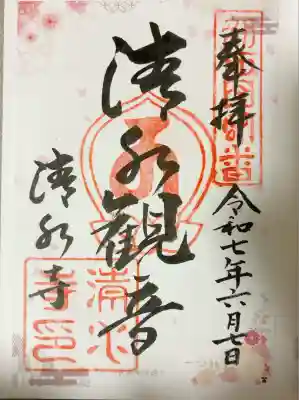 奉拝
令和七年六月七日
清水観音
清水寺
清水
寺印